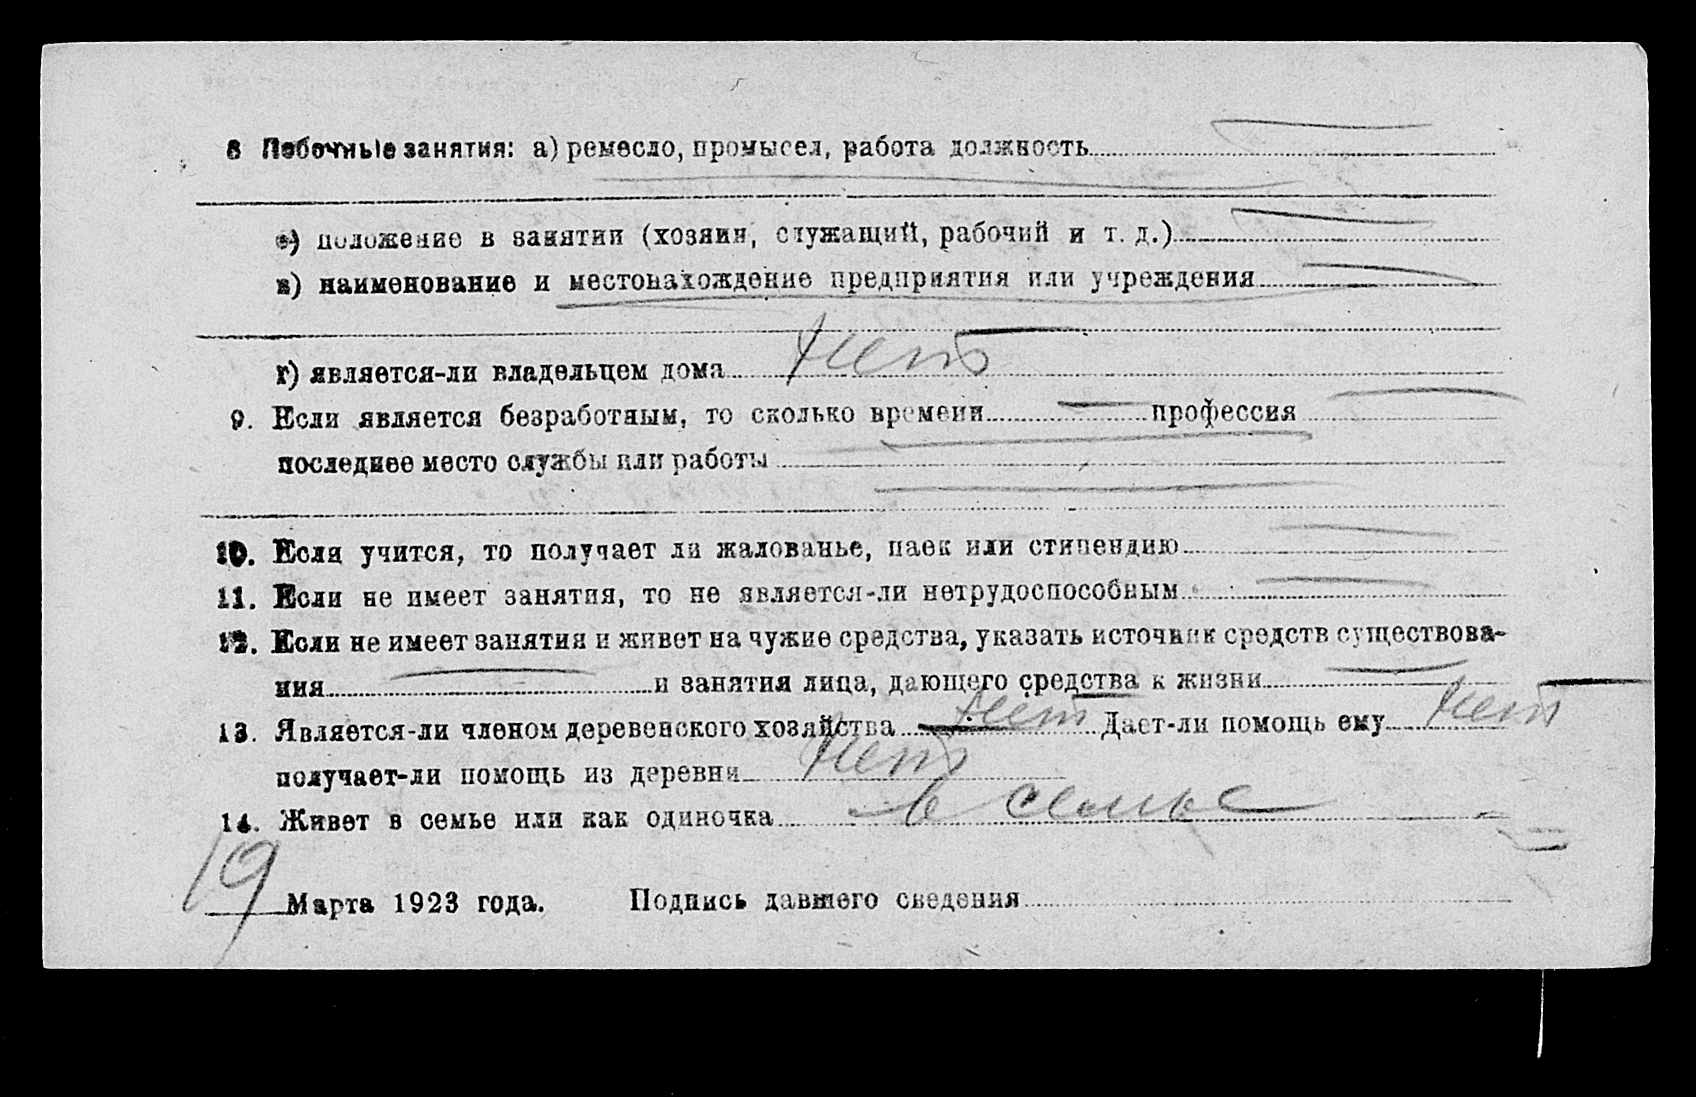 8 Побочные занятия: а) ремесло, промысел, работа должность
б) положение в занятии (хозяин, служащий, рабочий и т. д.)
в) наименование и местонахождение предприятия или учреждения
г) является-ли владельцем дома нет
9. Если является безработным, то сколько времени — профессия —
последнее место службы или работы
10. Если учится, то получает ли жалованье, паек или стипендию
11. Если не имеет занятия, то не является-ли нетрудоспособным
12. Если не имеет занятия и живет на чужие средства, указать источник средств существова-
ния — и занятия лица, дающего средства к жизни —
13. Является-ли членом деревенского хозяйства нет Дает-ли помощь ему нет
получает-ли помощь из деревни нет
14. Живет в семье или как одиночка в семье
19 Марта 1923 года. Подпись давшего сведения